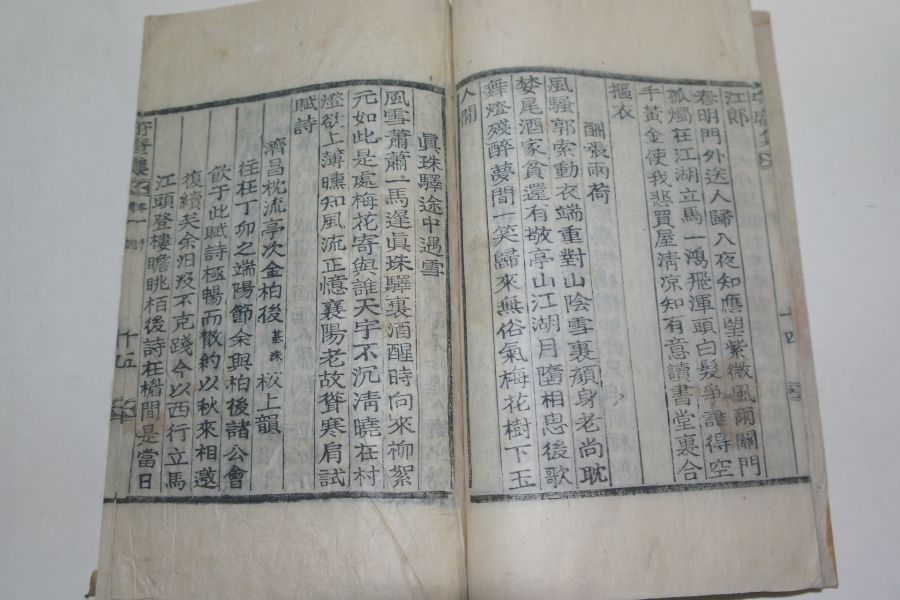 江郎
春明門外送人歸入夜知應望紫微風雨關門
孤燭在江湖立馬一鴻飛渾頭白髮爭誰得空
手黃金使我悲買屋淸凉知有意讀書堂裏合
摳衣
酬張雨荷
風騷郭索動衣端重對山陰雪裏顔身老尙耽
婪尾酒家貧還有敬亭山江湖月墮相思後歌
舞燈殘醉夢間一笑歸來無俗氣梅花樹下玉
人閒
眞珠驛途中遇雪
風雪蕭蕭一馬遲眞珠驛裏酒醒時向來柳絮
元如此是處梅花寄與誰天宇不沉淸曉在村
燈欲上薄曛知風流正憶襄陽老故聳寒肩試
賦詩
濟昌枕流亭次金柏後 基洙 板上韻
往在丁卯之端陽節余與柏後諸公會
飮于此賦詩極暢而散約以秋來相邀
復續矣余汨汲不克踐今以西行立馬
江頭登樓瞻眺栢後詩在楣間是當日
卷一
十五